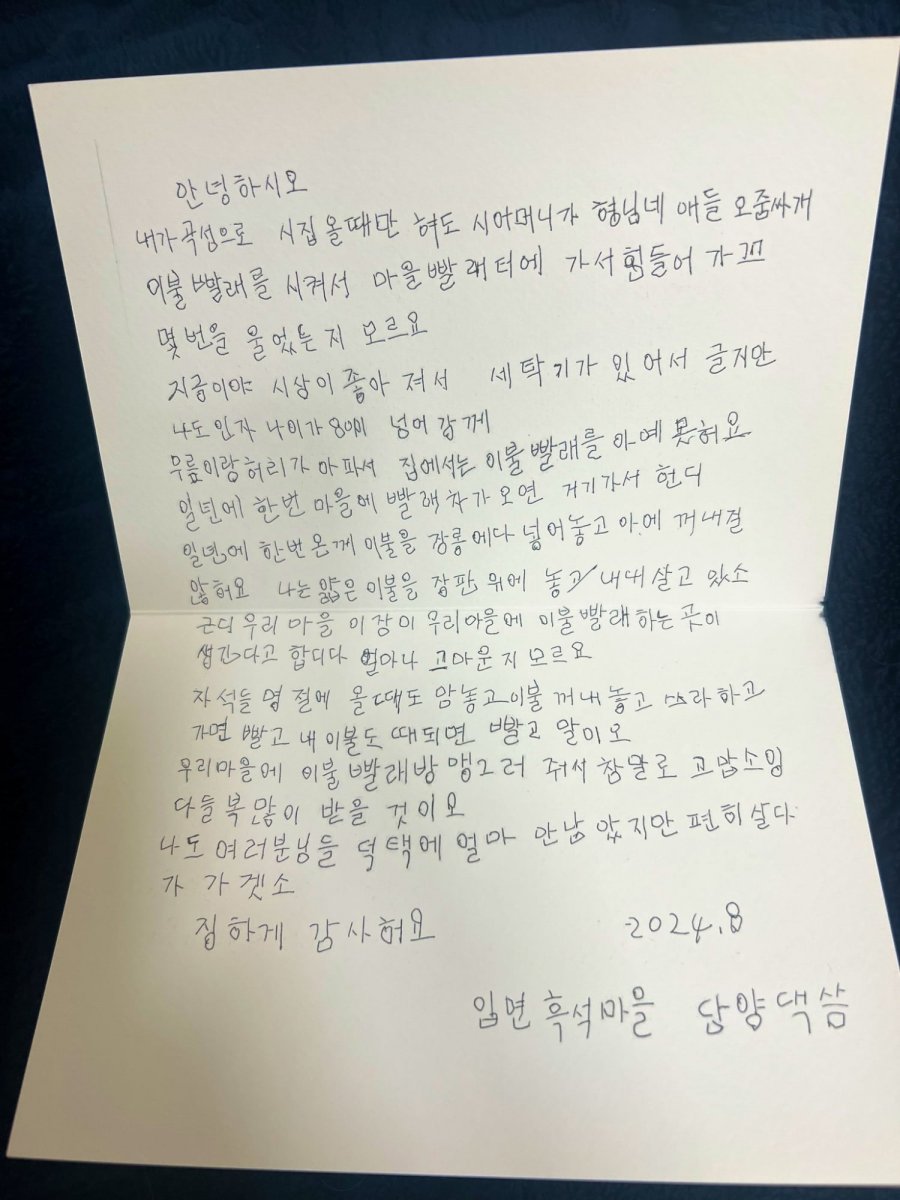 안녕하시오
내가 곡성으로 시집 올때만 혀도 시어머니가 형님네 애들 오줌싸개
이불 빨래를 시켜서 마을 빨래터에 가서 힘들어 가꼬
몇번을 울었는지 모르요
지금이야 시상이 좋아 져서 세탁기가 있어서 글지만
나도 인자 나이가 80이 넘어 감께
무릎이랑 허리가 아파서 집에서는 이불 빨래를 아예 못허요
일년에 한번 마을에 빨래차가 오면 거기가서 헌디
일년에 한번 온께 이불을 장롱에다 넣어놓고 아에 꺼내질
않허요 나는 얇은 이불을 장판 위에 놓고 내내 살고 있소
근디 우리 마을 이장이 우리마을에 이불 빨래하는 곳이
생긴다고 합디다 얼마나 고마운지 모르요
자석들 명절에 올때도 맘놓고 이불 꺼내 놓고 쓰라 하고
가면 빨고 내 이불도 때되면 빨고 말이오
우리마을에 이불 빨래방 맹그러 줘서 참말로 고맙소잉
다들 복 많이 받을 것이오
나도 여러분님들 덕택에 얼마 안남았지만 편히 살다
가 가겟소
집하게 감사혀요 2024.8
입면 흑석마을 담양댁 씀